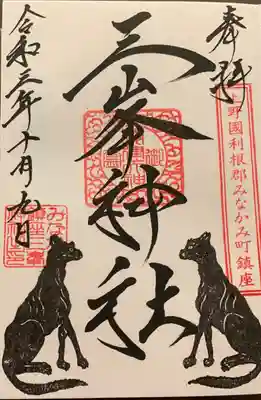 奉拝
上野國利根郡みなかみ町鎮座
三峯神社
令和三年十月九日